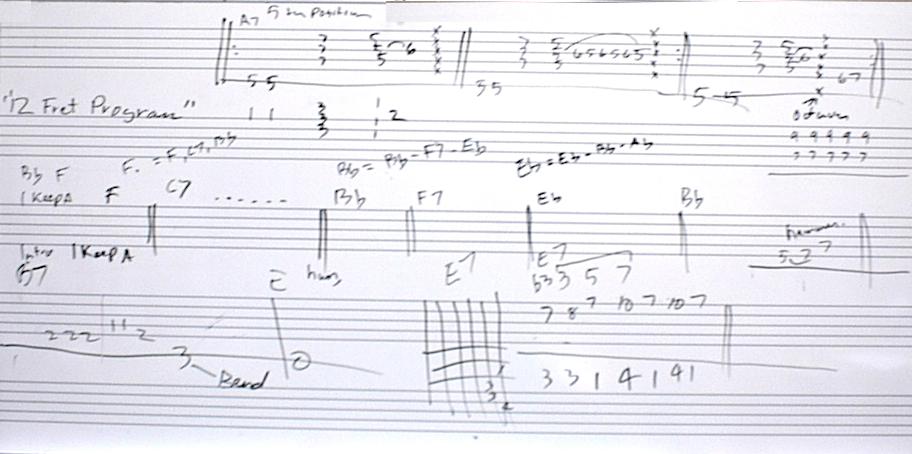 A7 5th Position
7 5 x 7 5 x 7 5 x
7 5 6 x 7 5 6 5 6 5 6 5 x 7 5 6 x
7 5 x 7 5 x 7 5 x 6 7
5 5 3 5 5 5 x
"12 Fret Program"
1 1 3 3 3 1 1 1 2
9 9 9 9 9
7 7 7 7 7
F. = F, C7, Bb Bb = Bb - F7 - Eb Eb = Eb - Bb - Ab
Bb F
1 Keep A F C7 ...... Bb F7 Eb Bb
hammer.
5 7 7
Intro 1 Keep A
B7 E E7 E7
b3 3 5 7
7 8 7 10 7 10 7
2 2 2 1 1 2
3 0
Bend
3 3 1 4 1 4 1